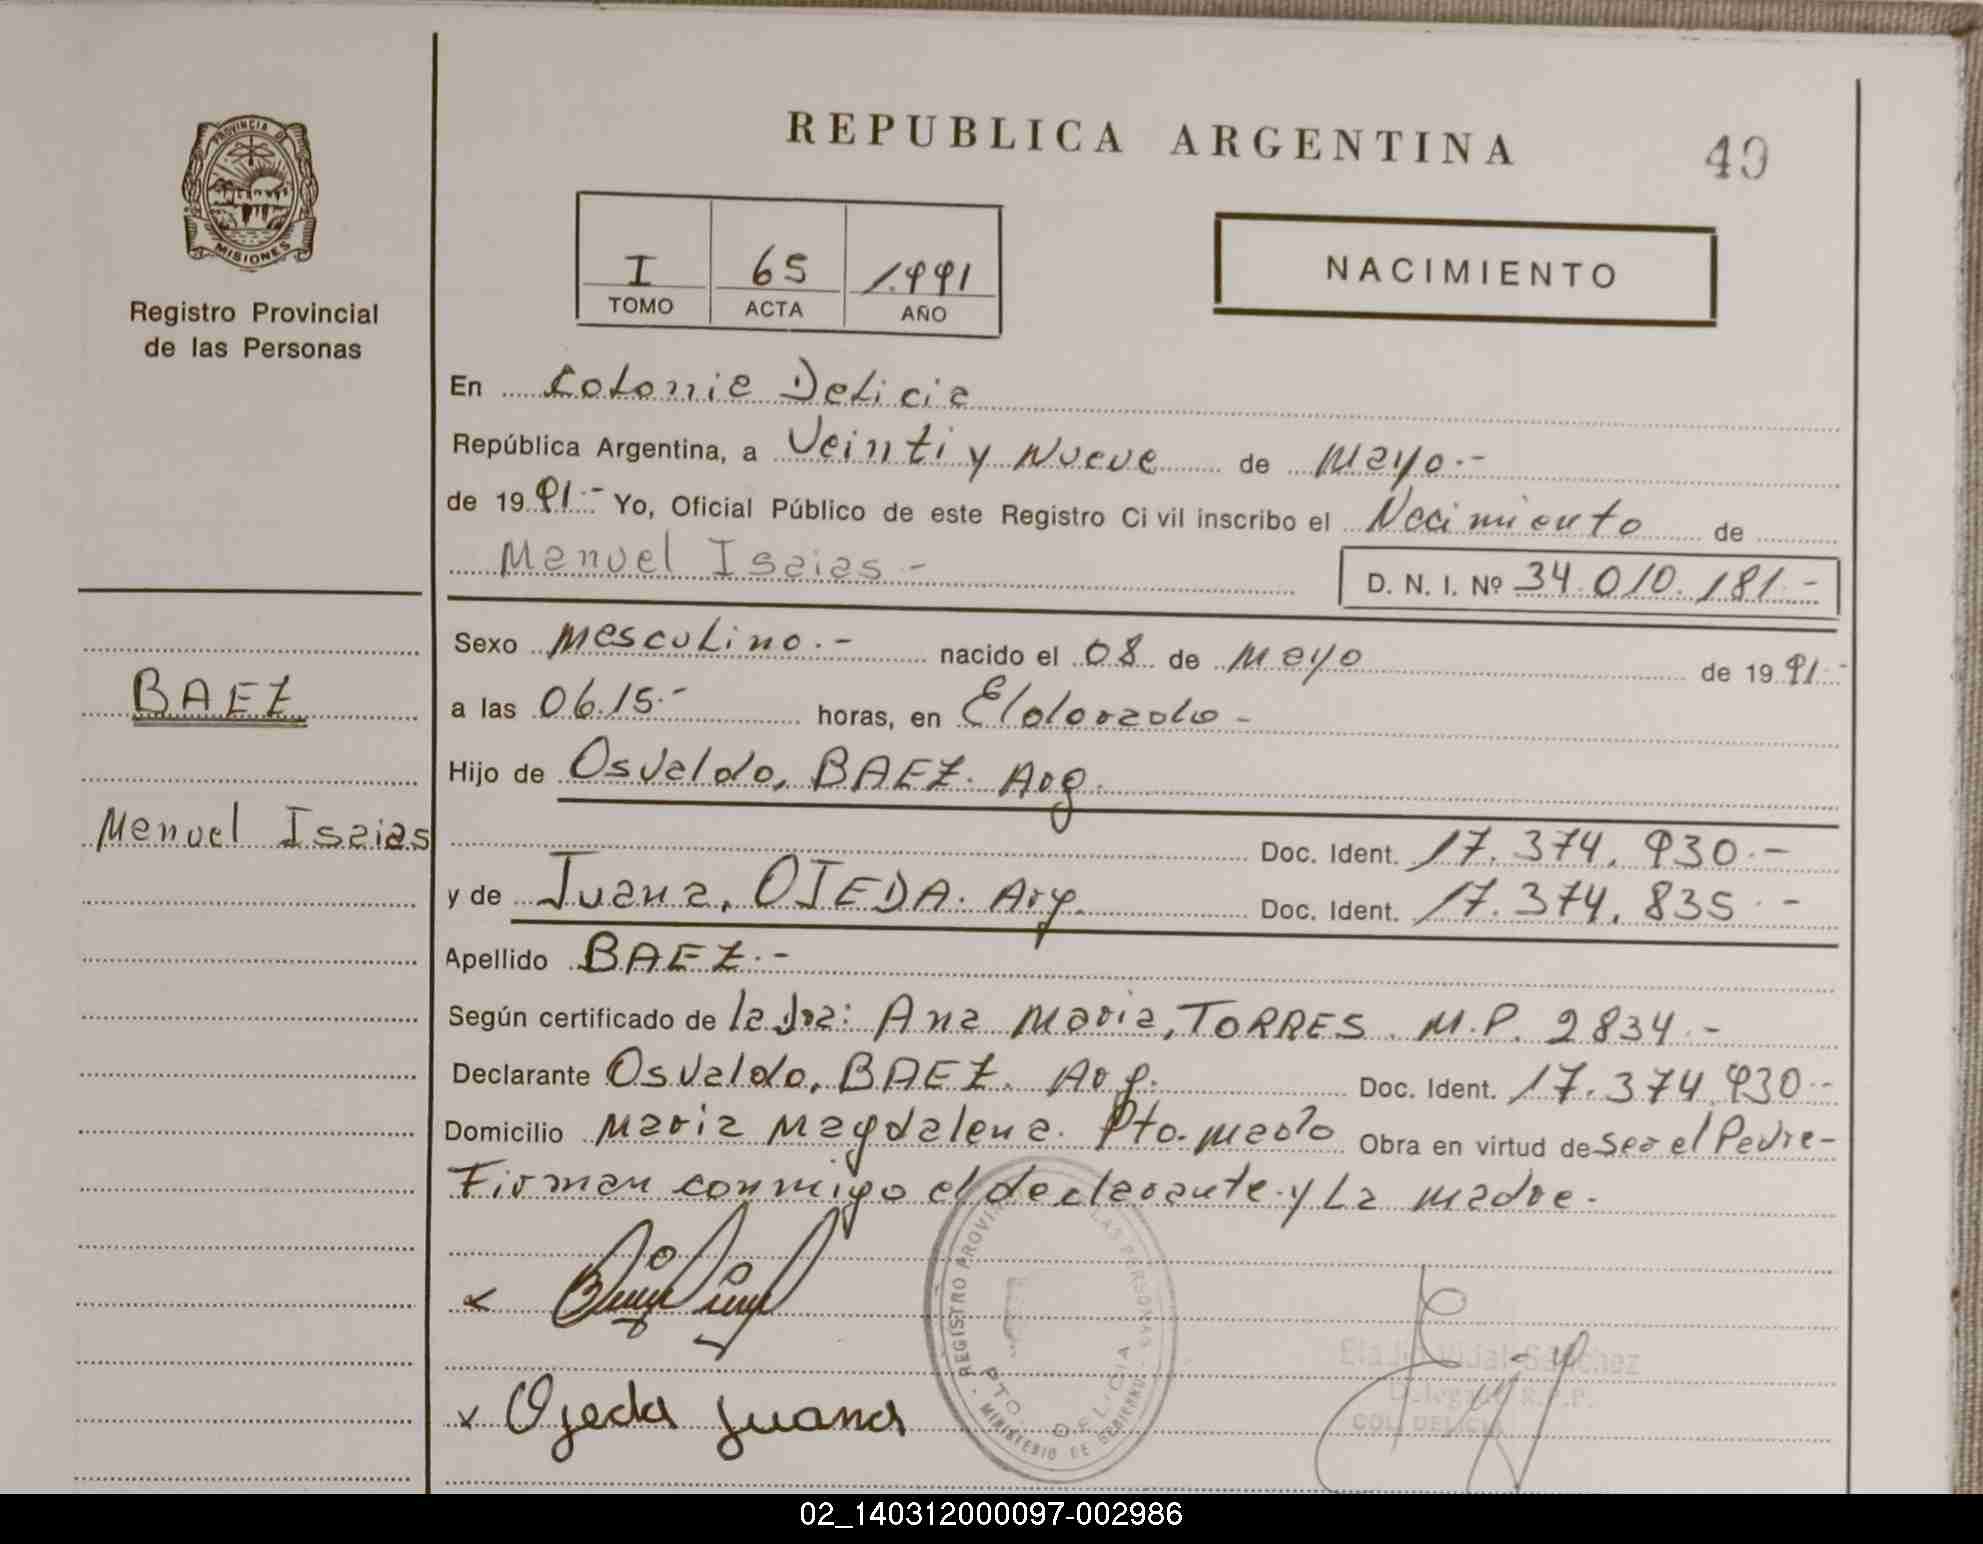 REPUBLICA ARGENTINA
49
PROVINCIA DE
MISIONES
Registro Provincial
de las Personas
I 65 1.991
TOMO ACTA AÑO
NACIMIENTO
En Colonia Delicia
República Argentina, a Veinti y Nueve de Mayo.-
de 19 91.- Yo, Oficial Público de este Registro Ci vil inscribo el Nacimiento de
Manuel Isaias -
D. N. I. Nº 34.010.181.-
BAEZ
Manuel Isaias
Sexo Masculino.- nacido el 08 de Mayo de 19 91.-
a las 06.15.- horas, en Eldorado -
Hijo de Osvaldo, BAEZ. Arg.
Doc. Ident. 17.374.930.-
y de Juana, OJEDA. Arg. Doc. Ident. 17.374.835.-
Apellido BAEZ.-
Según certificado de la Dra: Ana Maria, TORRES. M.P. 2834.-
Declarante Osvaldo, BAEZ. Arg. Doc. Ident. 17.374.930.-
Domicilio Maria Magdalena. Pto. Mado Obra en virtud de Ser el Padre-
Firman conmigo el declarante y La madre.
REGISTRO PROVINCIAL DE LAS PERSONAS
PTO. DELICIA
MINISTERIO DE GOBIERNO
Vidal Sanchez
Delegado R.P.P.
COL. DELICIA
x Ojeda Juana
02_140312000097-002986